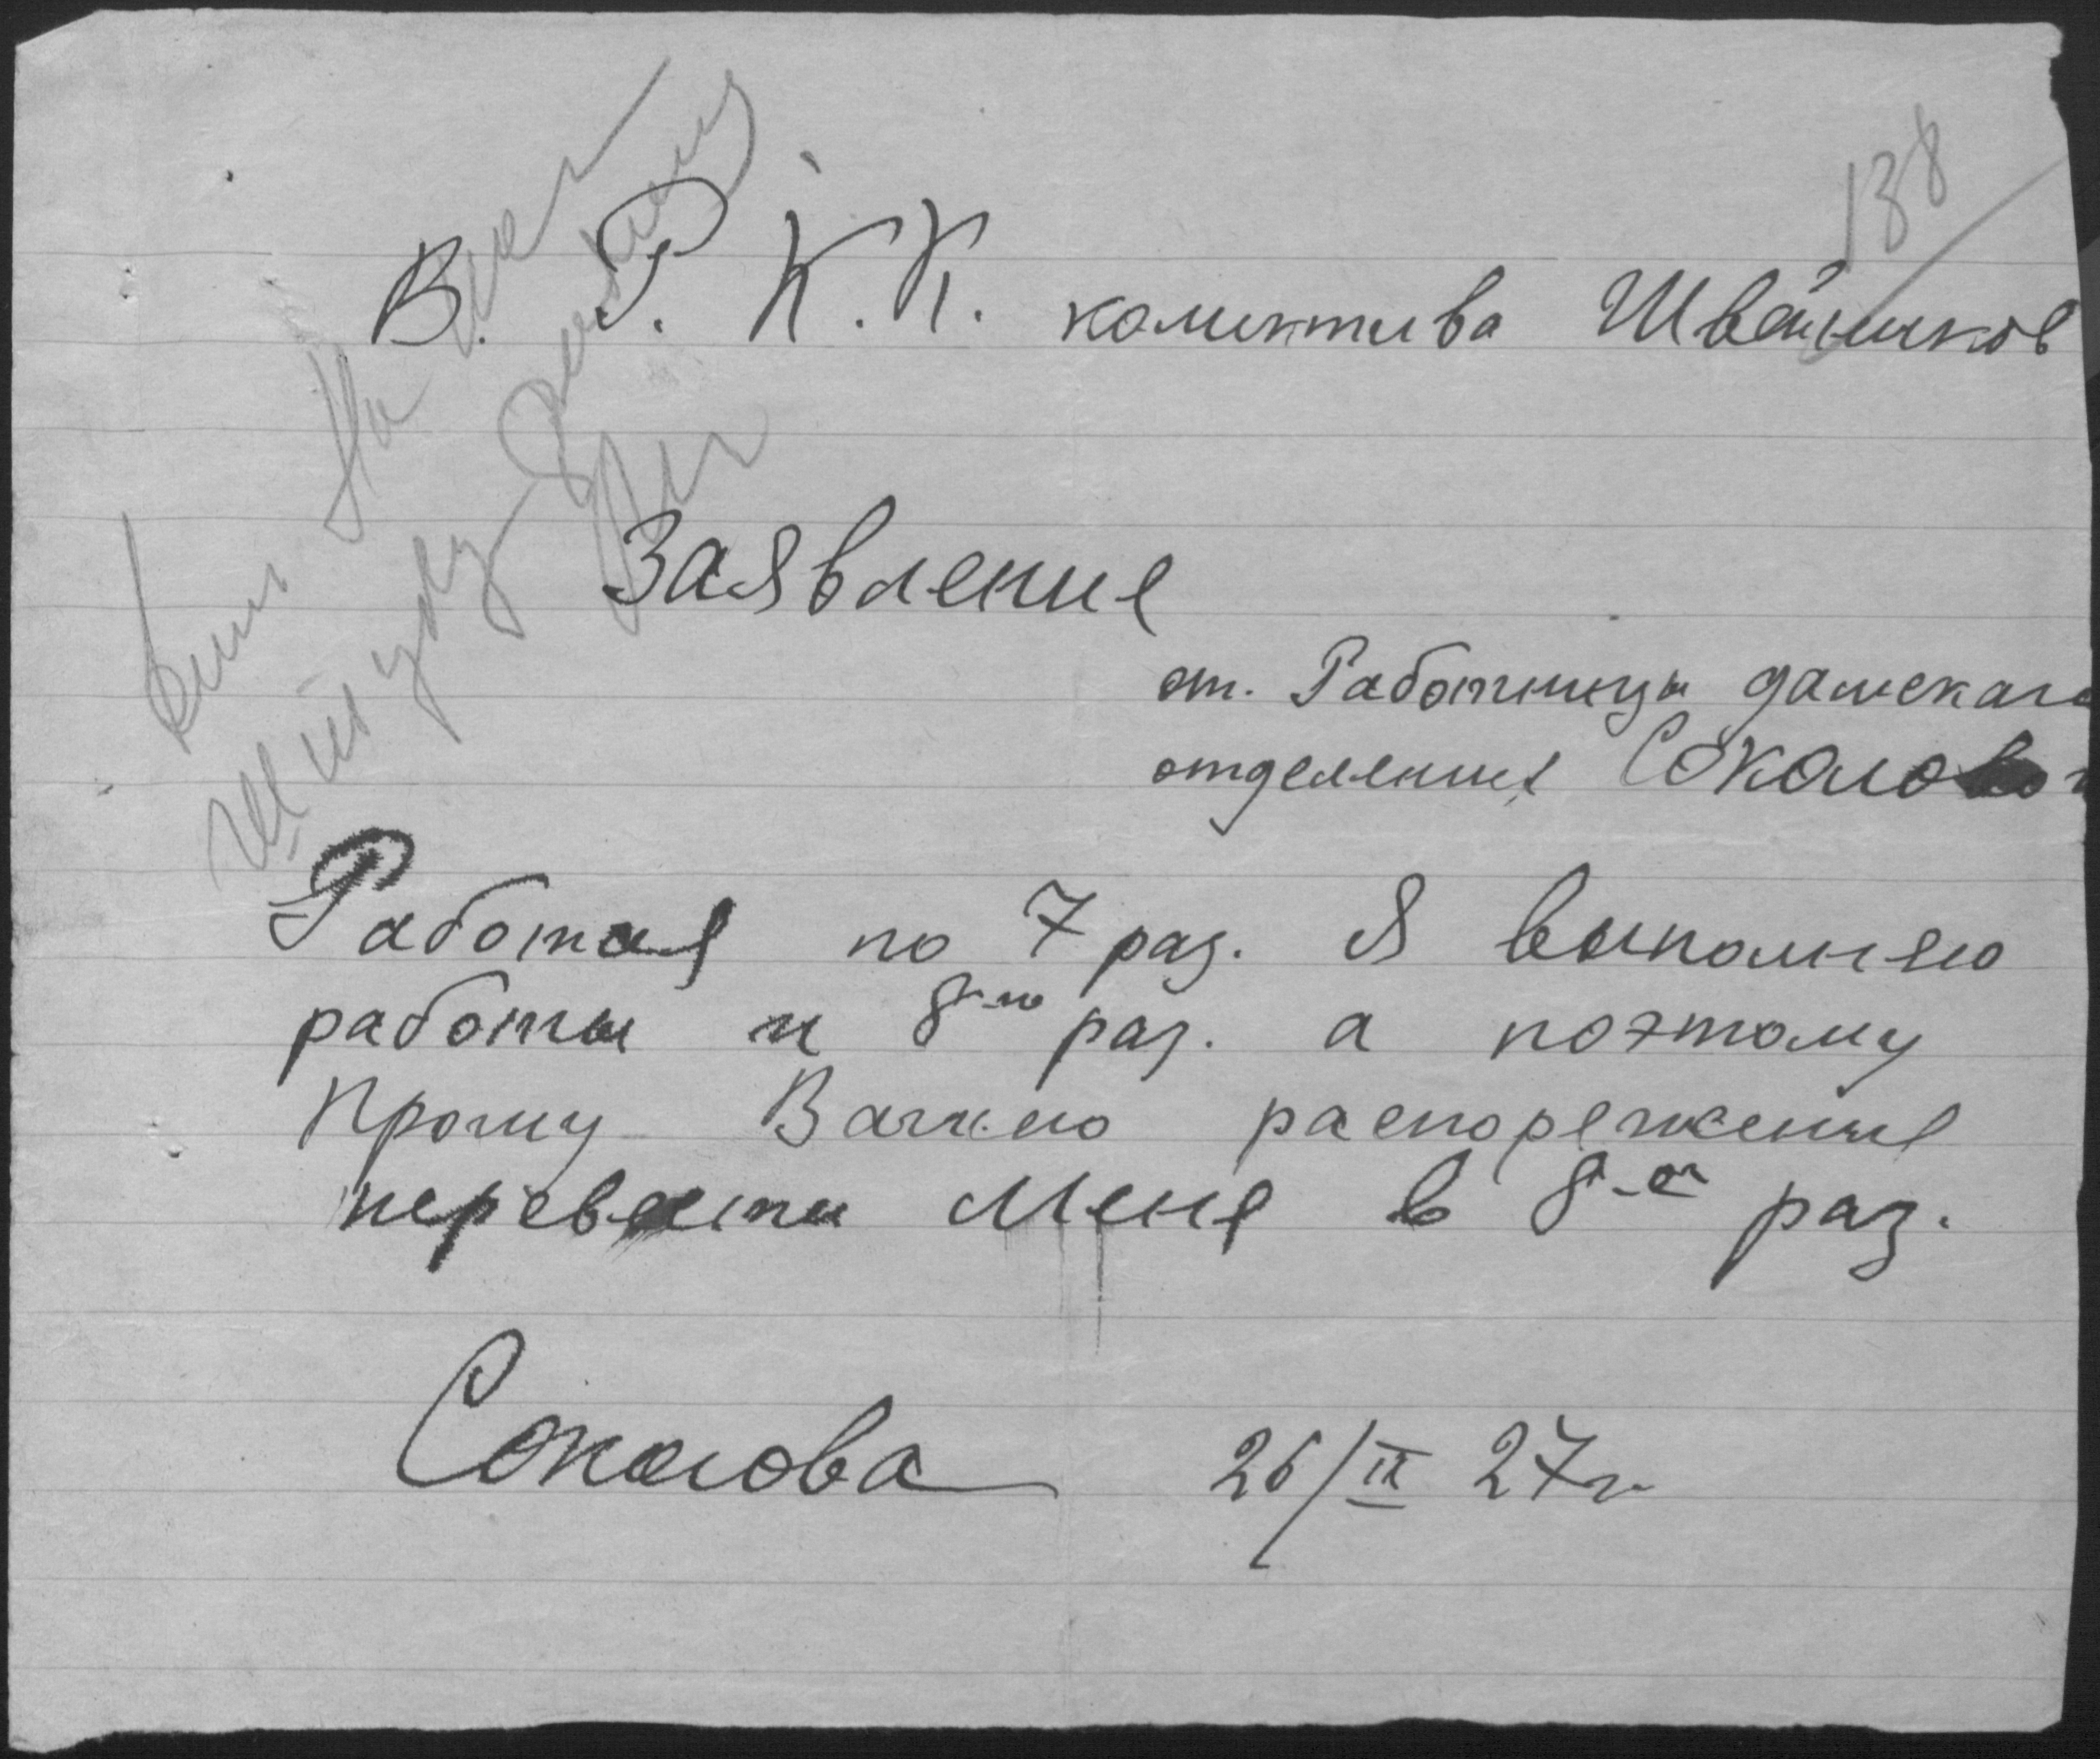 138
В. Р. К. К. колектива Швейников
Заявление
от. Работницы дамскаго
отделения Соколовой
Работая по 7 раз. я выполняю
работы и 8-го раз. а поэтому
Прошу Вашего распореженя
перевести меня в 8-ой раз.
Соколова 26/IX 27г.